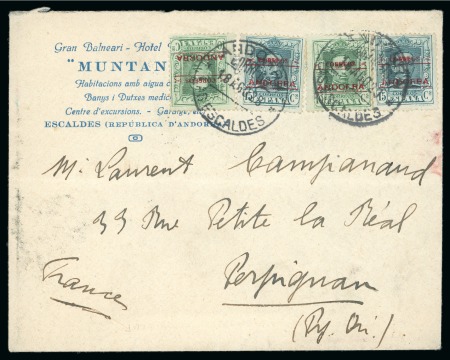 Gran Balneari - Hotel
"MUNTAN
Habitacions amb aigua c
Banys i Dutxes medic
Centre d'excursions. - Garatge,
ESCALDES (REPÚBLICA D'ANDOR
CORREOS ANDORRA
CORREOS ANDORRA
CORREOS ANDORRA
CORREOS ANDORRA
ANDOR
ESCALDES
ESCALDES
M. Laurent Campianaud
33 Rue Petite la Réal
Perpignan
France
(Py. Or.)